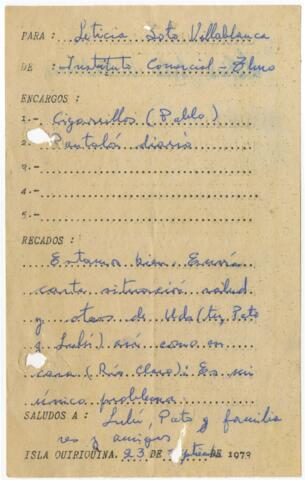 PARA : Leticia Soto Villablanca
DE : Instituto Comercial -
ENCARGOS :
1.- Cigarrillos (Pablo)
2.- Pantalón diario
3.-
4.-
5.-
RECADOS :
Estamos bien. Envía
carta situación salud
y otros de Uds (tu, Pato
y Lulú) así como en
casa (Río Claro). Es mi
único problema.
SALUDOS A : Lulú, Pato y familia
res y amigos
ISLA QUIRIQUINA, 23 DE Septiembre DE 1973